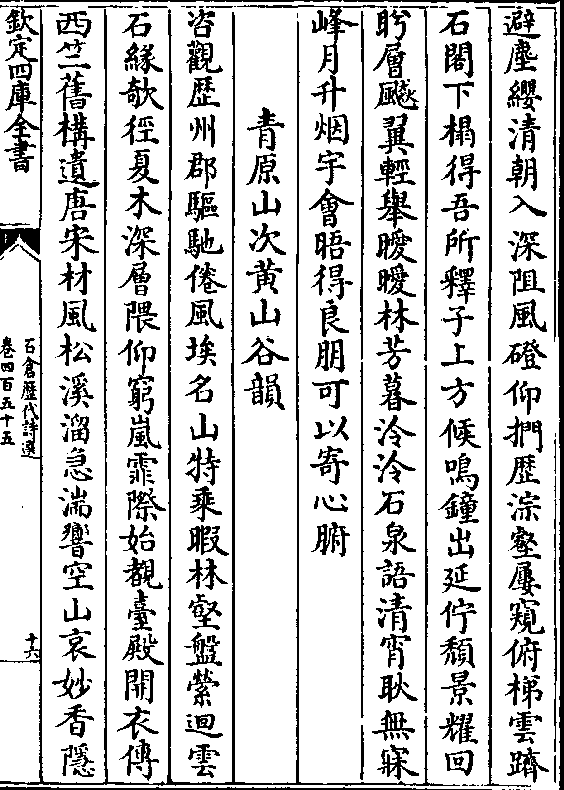 避塵纓清朝入深阻風磴仰捫歴淙壑屢窺俯梯雲躋
石閣下榻得吾所釋子上方候鳴鐘出延佇頹景耀回
眄層飈翼輕舉曖曖林芳暮泠泠石泉語清宵耿無寐
峰月升烟宇會晤得良朋可以寄心腑
青原山次黄山谷韻
咨觀歴州郡驅馳倦風埃名山特乘暇林壑盤縈迴雲
石緣欹徑夏木深層隈仰窮嵐霏際始覩臺殿開衣傳
西竺舊構遺唐宋材風松溪溜急湍響空山哀妙香隱
欽定四庫全書
石倉歴代詩選
卷四百五十五
十六